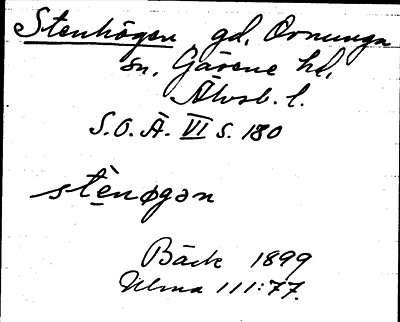 Stenhögen gd, Ornunga
sn, Gäsene hd,
Älvsb. l.
S.O.Ä. VI s. 180
stènøgən
Bäck 1899
Ulma 111:77.